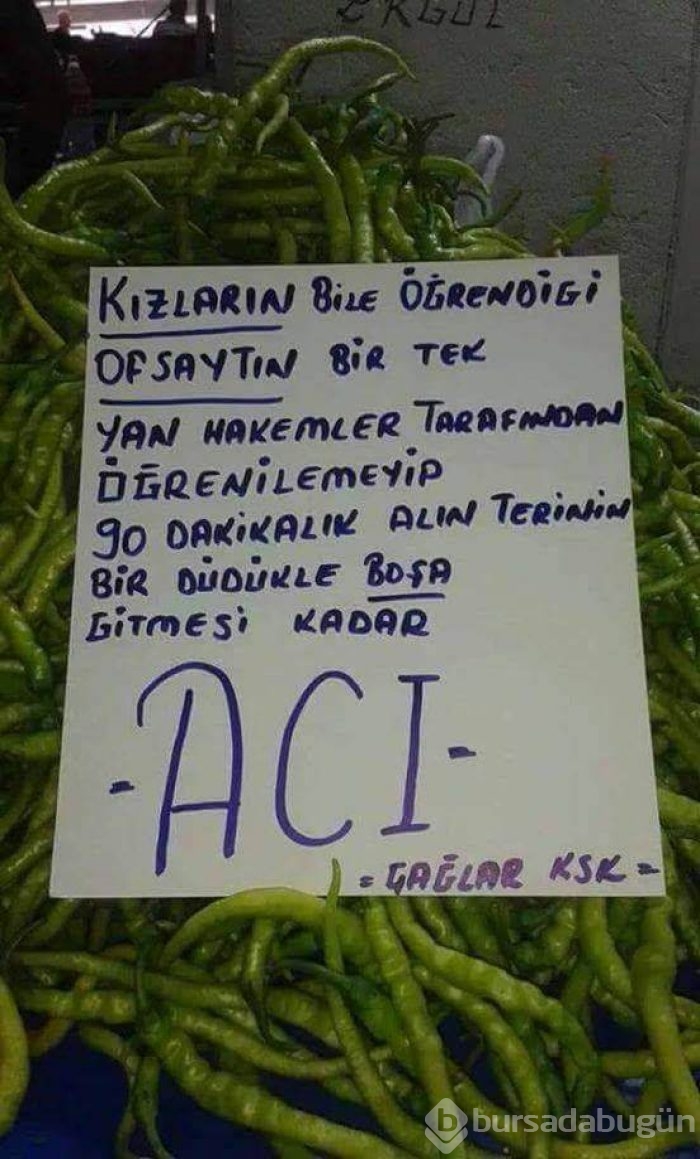 ERGÜL
KIZLARIN BİLE ÖĞRENDİGİ
OFSAYTIN BİR TEK
YAN HAKEMLER TARAFINDAN
ÖĞRENİLEMEYİP
90 DAKİKALIK ALIN TERİNİN
BİR DÜDÜKLE BOŞA
GİTMESİ KADAR
-ACI-
= ÇAĞLAR KSK =
bursadabugün